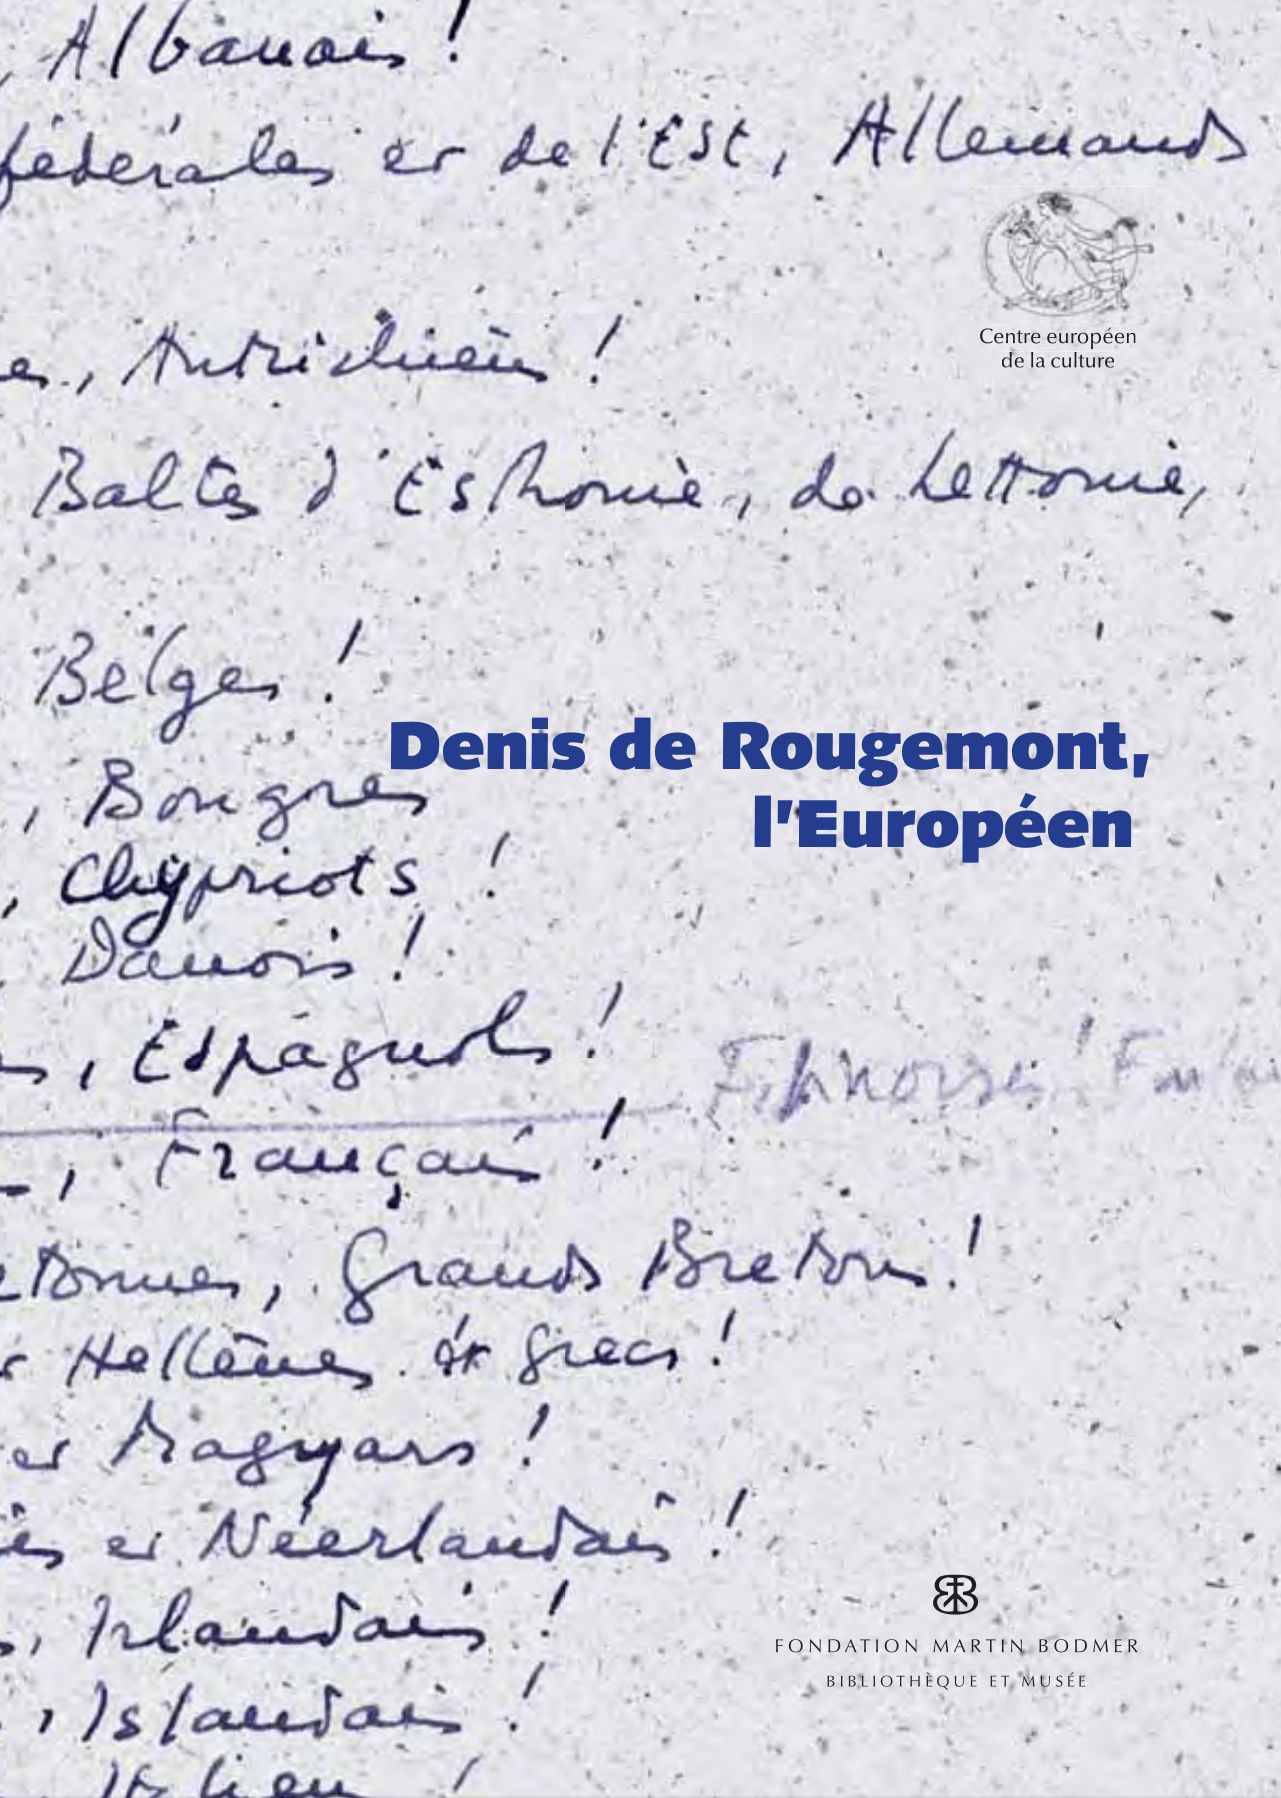 , Albanais !
fédérales et de l'Est, Allemands
Centre européen
de la culture
es, Autrichiens !
Baltes d'Esthonie, de Lettonie,
Belges !
Denis de Rougemont,
, Bougres
l'Européen
, Chypriots !
Danois !
, Espagnols !
, Français !
etonnes, Grands Bretons !
Hellènes Grecs !
et Magyars !
et Néerlandais !
, Irlandais !
, Islandais !
FONDATION MARTIN BODMER
BIBLIOTHÈQUE ET MUSÉE